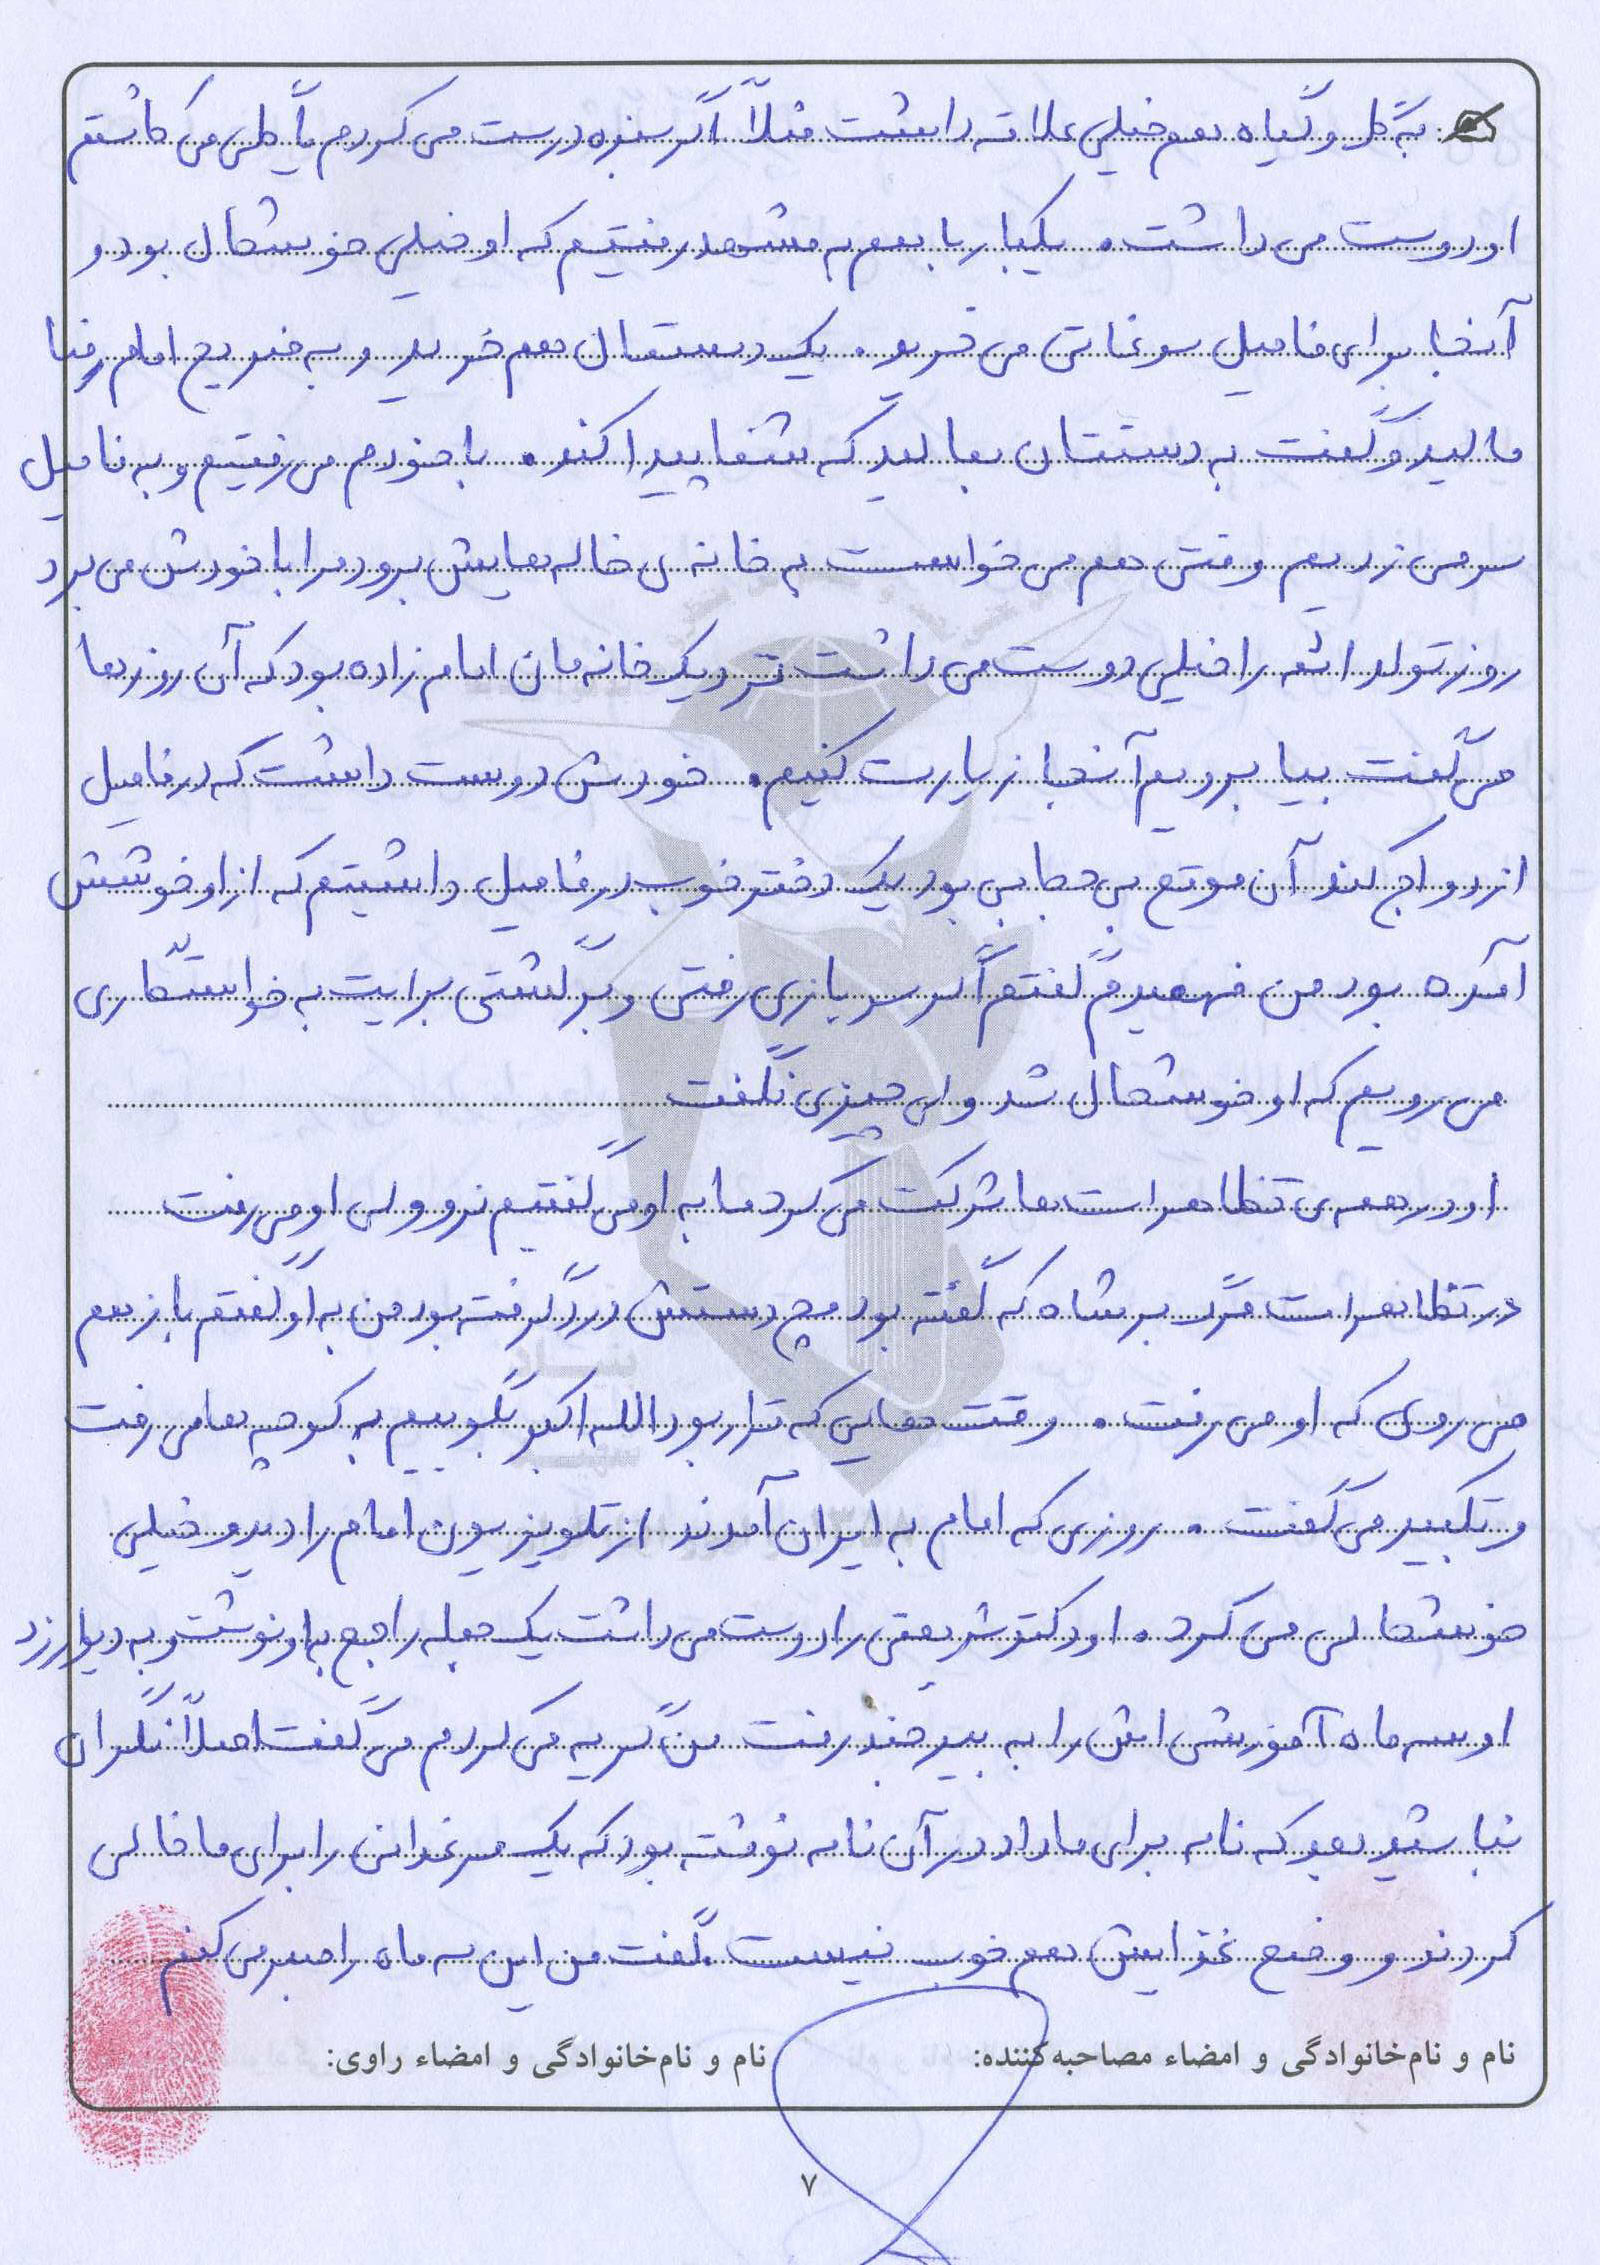 به گل و گیاه هم خیلی علاقه داشت مثلاً اگر سبزه درست می کردم یا گلی می کاشتم
او دوست می داشت. یکبار با هم به مشهد رفتیم که او خیلی خوشحال بود و
آنجا برای فامیل سوغاتی می خرید. یک دستمال هم خرید و به ضریح امام رضا
مالید و گفت به دستتان بمالید که شفا پیدا کند. با خودم می رفتیم و به فامیل
سر می زدیم وقتی هم می خواست به خانه ی خاله هایش برود مرا با خودش می برد
روز تولد ائمه را خیلی دوست می داشت نزدیک خانه مان امام زاده بود که آن روزها
می گفت بیا برویم آنجا زیارت کنیم. خودش دوست داشت که در فامیل
ازدواج کند آن موقع بی حجابی بود یک دختر خوب در فامیل داشتیم که از او خوشش
آمده بود من فهمیدم گفتم اگر سربازی رفتی و برگشتی برایت به خواستگاری
می رویم که او خوشحال شد ولی چیزی نگفت
او در همه ی تظاهرات ها شرکت می کرد ما به او می گفتیم نرو ولی او می رفت
در تظاهرات مرگ بر شاه که گفته بود مچ دستش درد گرفته بود من به او گفتم باز هم
می روی که او می رفت. وقت هایی که قرار بود الله اکبر بگوییم به کوچه ها می رفت
و تکبیر می گفت. روزی که امام به ایران آمدند از تلویزیون امام را دید و خیلی
خوشحالی می کرد. او دکتر شریعتی را دوست می داشت یک جمله راجع به او نوشت و به دیوار زد
او سه ماه آموزشی اش را به بیرجند رفت من گریه می کردم می گفت اصلاً نگران
نباشید بعد که نامه برای ما داد در آن نامه نوشته بود که یک مرغدانی را برای ما خالی
کردند و وضع غذایش هم خوب نیست گفت من این سه ماه را صبر می کنم
نام و نام‌خانوادگی و امضاء مصاحبه‌کننده: نام و نام‌خانوادگی و امضاء راوی:
۷